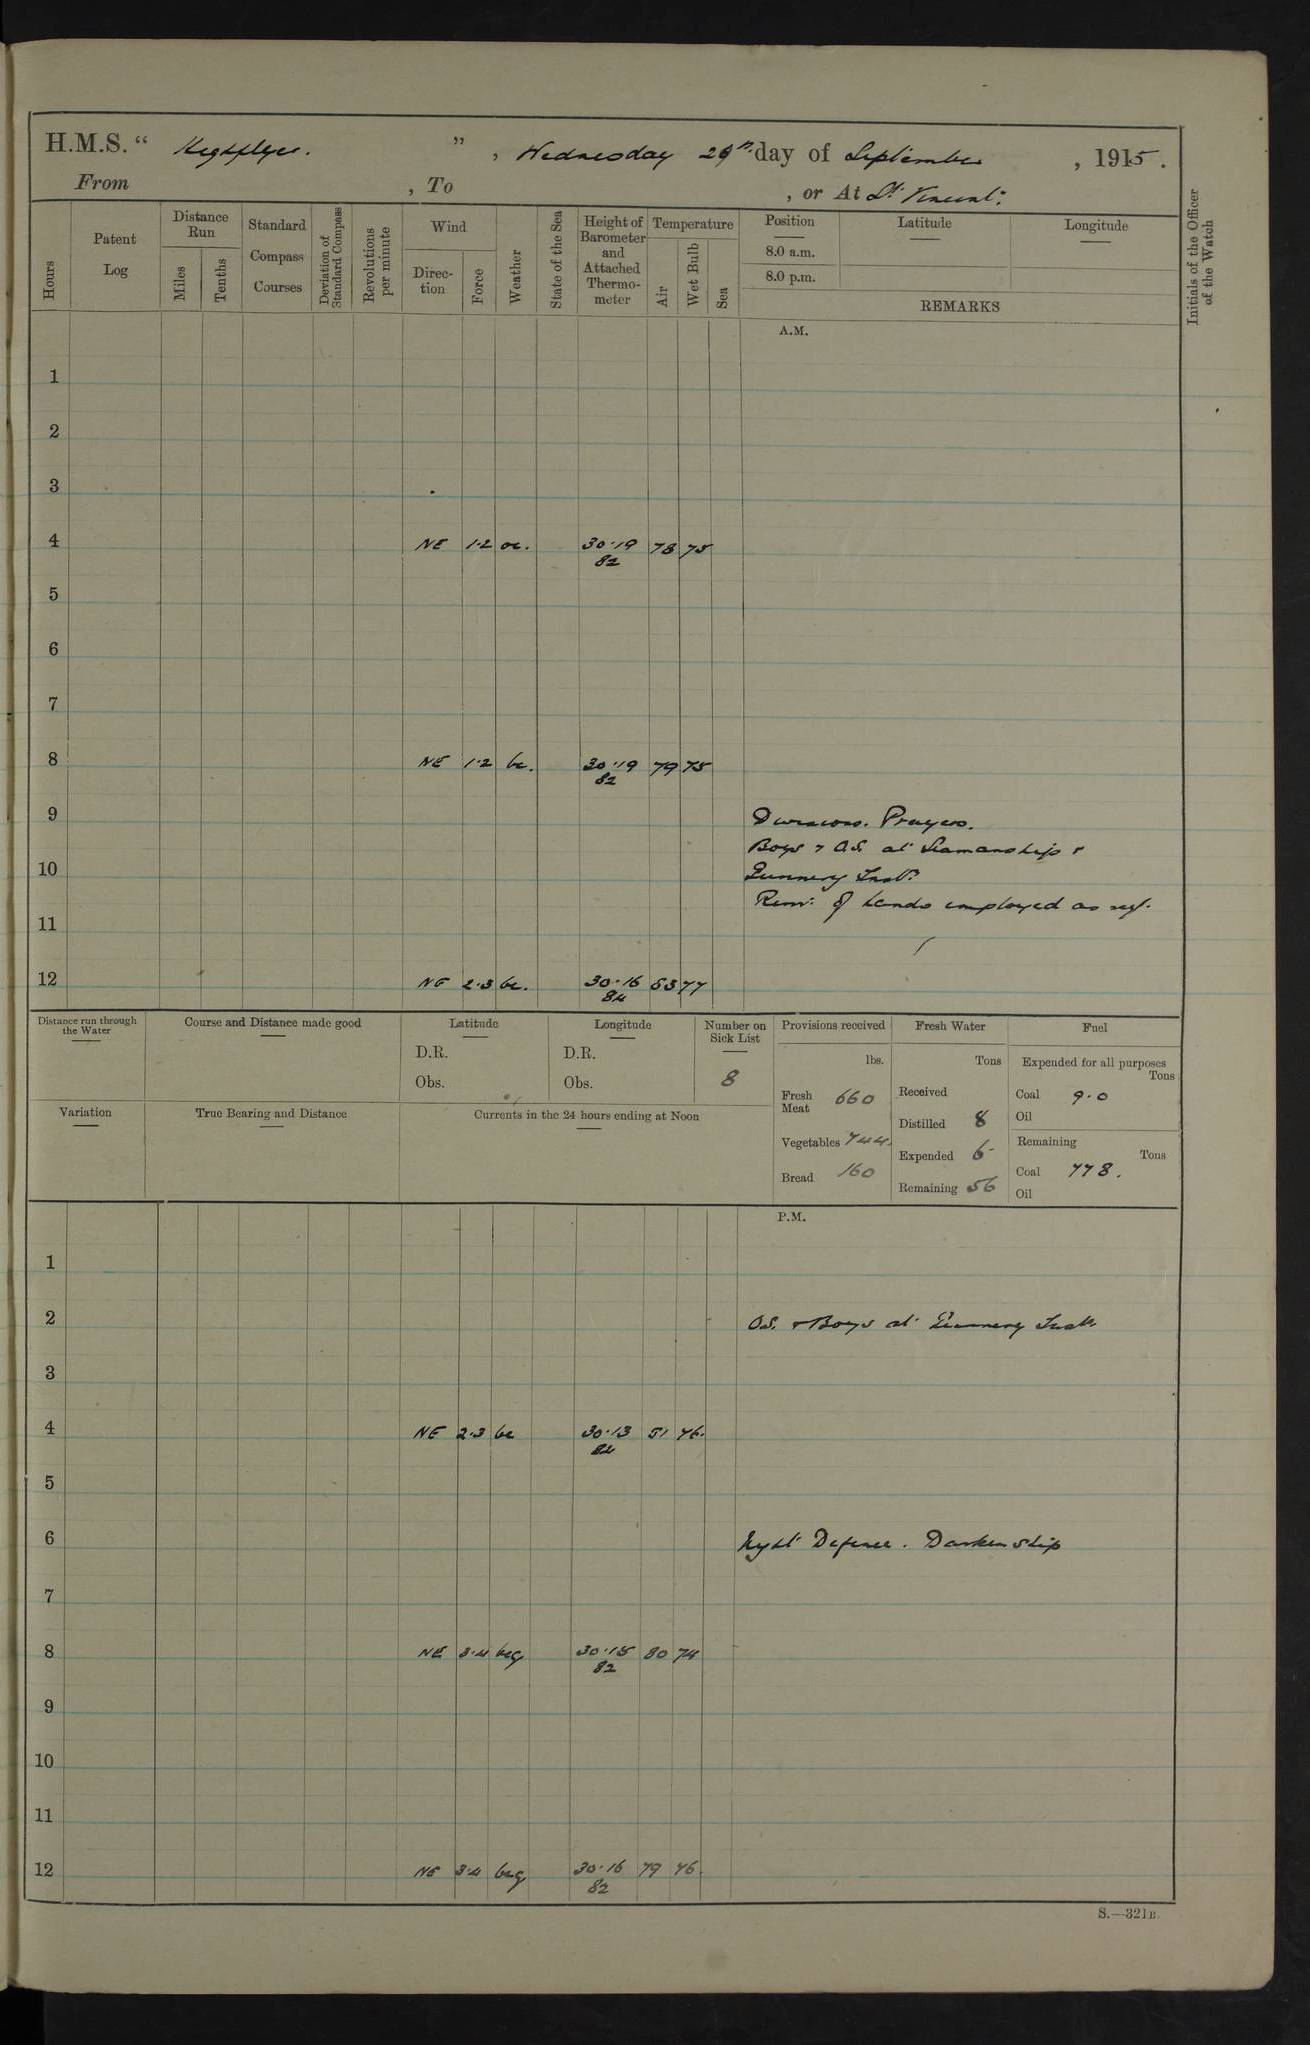 H.M.S. “ Highflyer. ” , Wednesday 29th day of September , 1915.
From , To , or At St. Vincent.
Hours
Patent Log
Distance Run
Miles
Tenths
Standard Compass Courses
Deviation of Standard Compass
Revolutions per minute
Wind
Direction
Force
Weather
State of the Sea
Height of Barometer and Attached Thermometer
Temperature
Air
Wet Bulb
Sea
Position
8.0 a.m.
8.0 p.m.
Latitude
Longitude
REMARKS
Initials of the Officer of the Watch
A.M.
1
2
3
4 NE 1·2 oc. 30·19 78 75
82
5
6
7
8 NE 1·2 bc. 30·19 79 75
82
9 Divisions. Prayers.
Boys & O.S. at Seamanship &
10 Gunnery Instn.
Remr. of hands employed as req.
11
12 NE 2·3 bc. 30·16 83 77
84
Distance run through the Water
Course and Distance made good
Latitude
D.R.
Obs.
Longitude
D.R.
Obs.
Number on Sick List
8
Provisions received
lbs.
Fresh Meat 660
Vegetables 744.
Bread 160
Fresh Water
Tons
Received
Distilled 8
Expended 6
Remaining 56
Fuel
Expended for all purposes
Tons
Coal 9·0
Oil
Remaining
Tons
Coal 778.
Oil
Variation
True Bearing and Distance
Currents in the 24 hours ending at Noon
P.M.
1
2 O.S. & Boys at Gunnery Instn.
3
4 NE 2·3 bc 30·13 81 76.
84
5
6 Night Defence. Darken ship
7
8 NE 3·4 bcq 30·15 80 74
82
9
10
11
12 NE 3·4 bcq 30·16 79 76.
82
S.—321B.